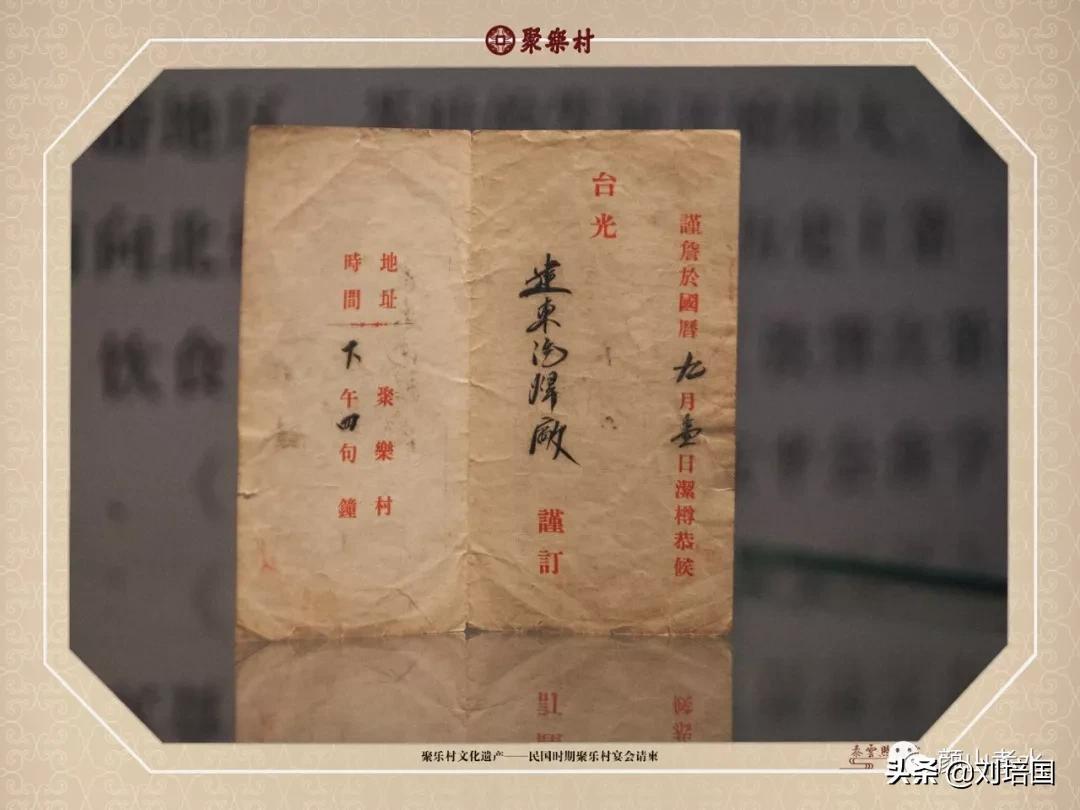 聚樂村
謹詹於國曆九月壹日潔樽恭候
台光
建東
謹訂
地址 聚樂村
時間 下午四句鐘
聚乐村文化遗产——民国时期聚乐村宴会请柬
头条 @刘培国